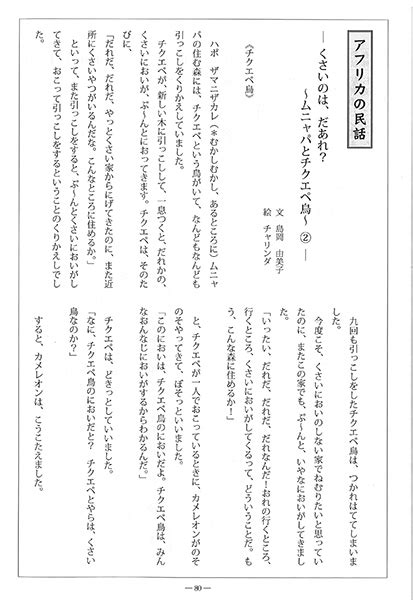 アフリカの民話
―くさいのは、だあれ?
~ムニャパとチクエペ鳥~ ②―
文 島岡 由美子
絵 チャリンダ
《チクエペ鳥》
ハポ ザマニザカレ(*むかしむかし、あるところに)ムニャ
パの住む森には、チクエペという鳥がいて、なんどもなんども
引っこしをくりかえしていました。
チクエペが、新しい木に引っこしして、一息つくと、だれかの、
くさいにおいが、ぷ~んとにおってきます。チクエペは、そのた
びに、
「だれだ、だれだ、やっとくさい家からにげてきたのに、また近
所にくさいやつがいるんだな。こんなところに住めるか。」
といって、また引っこしをすると、ぷ~んとくさいにおいがし
てきて、おこって引っこしをするということのくりかえしでし
た。
九回も引っこしをしたチクエペ鳥は、つかれはててしまいま
した。
今度こそ、くさいにおいのしない家でねむりたいと思ってい
たのに、またこの家でも、ぷ~んと、いやなにおいがしてきまし
た。
「いったい、だれだ、だれだ、だれなんだ!おれの行くところ、
行くところ、くさいにおいがしてくるって、どういうことだ。も
う、こんな森に住めるか!」
と、チクエペが一人でおこっているときに、カメレオンがのそ
のそやってきて、ぼそっといいました。
「このにおいは、チクエペ鳥のにおいだよ。チクエペ鳥は、みん
なおんなじにおいがするからわかるんだ。」
チクエペは、どきっとしていいました。
「なに、チクエペ鳥のにおいだと? チクエペとやらは、くさい
鳥なのか?」
すると、カメレオンは、こうこたえました。
― 80 ―